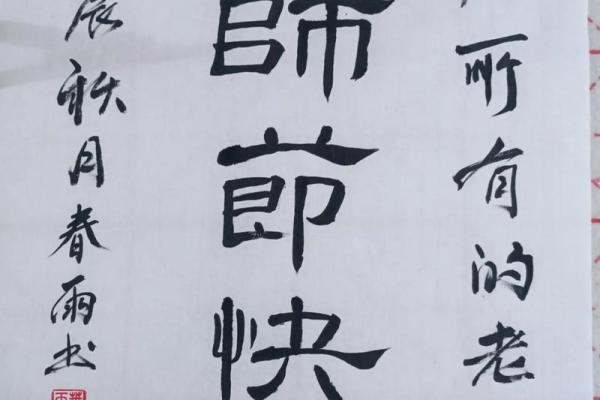 所有的老
師節快
辰秋月春雨书